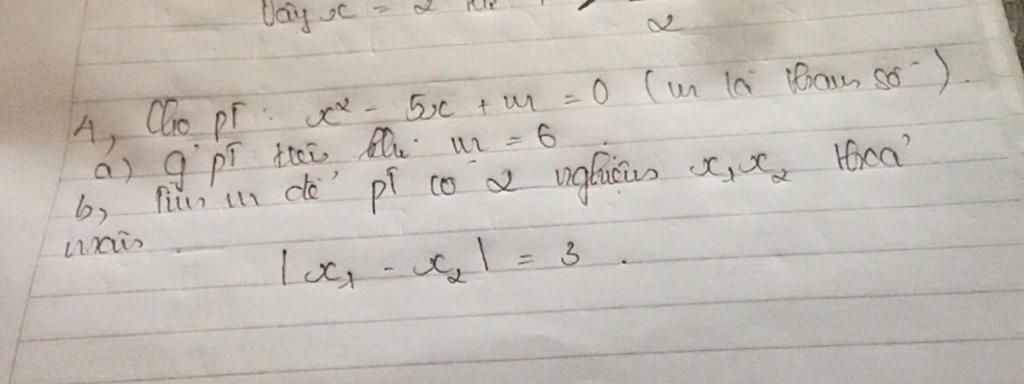 Vậy x = 2
2
4, Cho pt : x² - 5x + m = 0 (m là tham số).
a) g' pt trên khi m = 6.
b, tìm m để pt có 2 nghiệm x₁ x₂ thoả
mãn.
|x₁ - x₂| = 3.